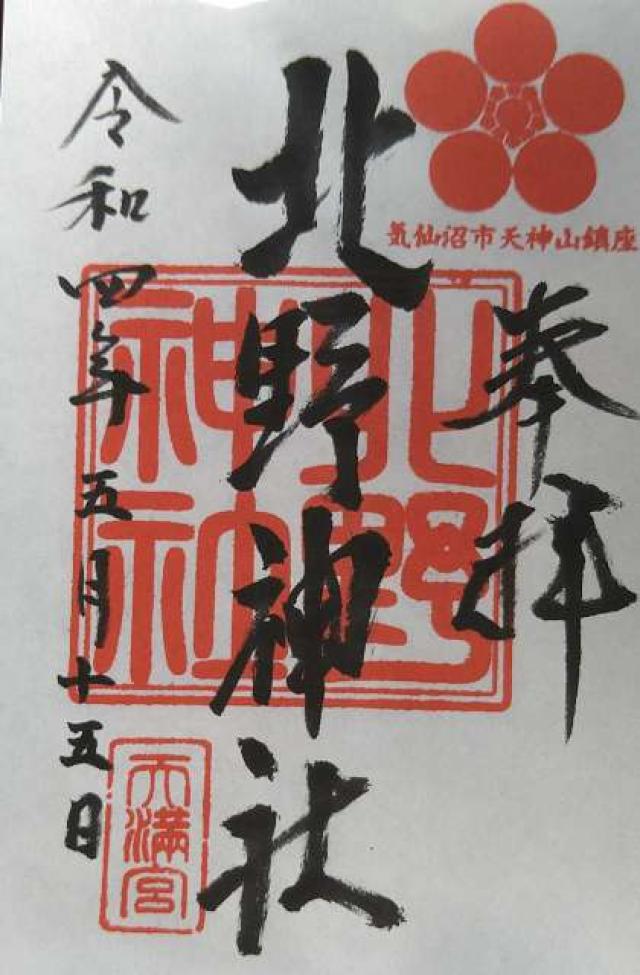 気仙沼市天神山鎮座
奉拝
北野神社
北野神社
令和四年五月十五日
天満宮